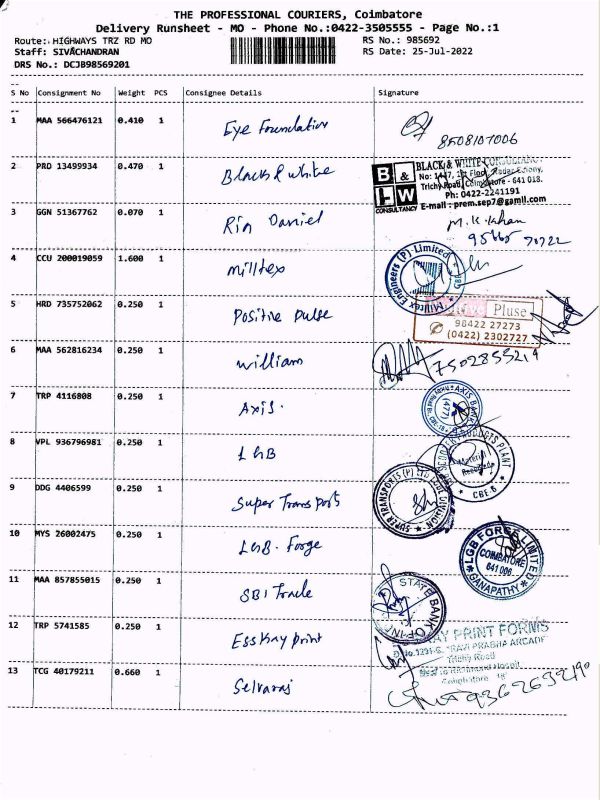 THE PROFESSIONAL COURIERS, Coimbatore
Delivery Runsheet - MO - Phone No.:0422-3505555 - Page No.:1
Route: HIGHWAYS TRZ RD MO RS No.: 985692
Staff: SIVACHANDRAN RS Date: 25-Jul-2022
DRS No.: DCJB98569201
S No Consignment No Weight PCS Consignee Details Signature
1 MAA 566476121 0.410 1 Eye Foundation
8508107006
2 PRO 13499934 0.470 1 Black & White
BLACK & WHITE CONSULTANCY
B & W CONSULTANCY
No: 1447, 1st Floor,
Trichy Road, Coimbatore - 641 018.
Ph: 0422-2241191
E-mail : prem.sep7@gamil.com
3 GGN 51367762 0.070 1 Rin Daniel
M.K. Khan
4 CCU 200019059 1.600 1 milltex
Milltex Engineers (P) Limited
CBE
5 HRD 735752062 0.250 1 Positive pulse
Pluse
98422 27273
(0422) 2302727
6 MAA 562816234 0.250 1 william
7502855219
7 TRP 4116808 0.250 1 Axis.
AXIS BANK
8 VPL 936796981 0.250 1 LGB
PRODUCTS PLANT
Material
CBE.6
9 DDG 4406599 0.250 1 Super Transports
SUPER TRANSPORTS (P) LTD
DIVISION
10 MYS 26002475 0.250 1 LGB. Forge
LGB FORGE LIMITED
COIMBATORE
641 006
GANAPATHY
11 MAA 857855015 0.250 1 SBI Trade
STATE BANK OF IN
12 TRP 5741585 0.250 1 Esskay print
KAY PRINT FORMS
"RAVI PRABHA ARCADE"
Trichy Road
13 TCG 40179211 0.660 1 Selvaraj